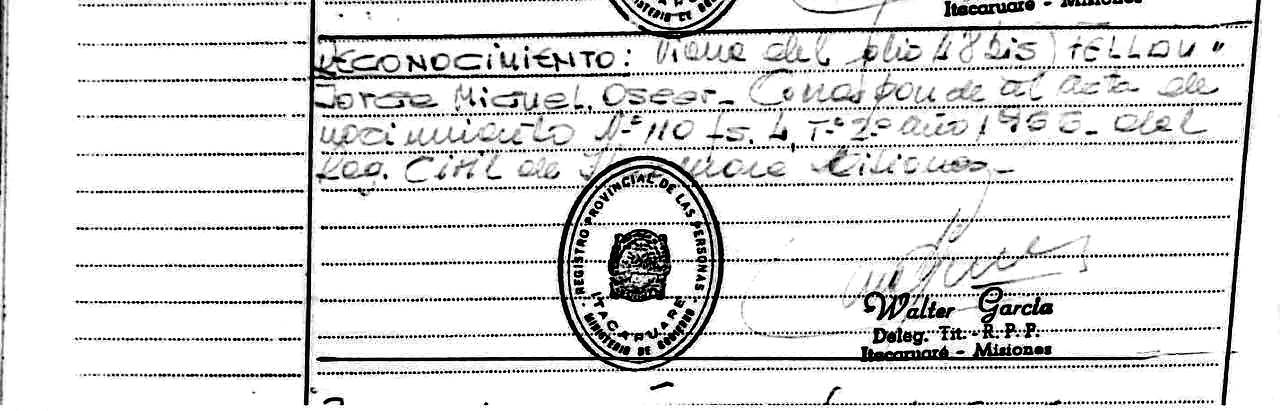 MINISTERIO DE
Itacaruaré - Misiones
RECONOCIMIENTO: Viene del folio 48 bis)
Jorge Miguel, Oscar_ Corresponde al acta de
nacimiento Nº 110 fs. 4, Tº 2º año 1966_ del
Reg. Civil de Misiones_
REGISTRO PROVINCIAL DE LAS PERSONAS
ITACARUARE
MINISTERIO DE GOBIERNO
Walter García
Deleg. Tit. - R. P. P.
Itacaruaré - Misiones